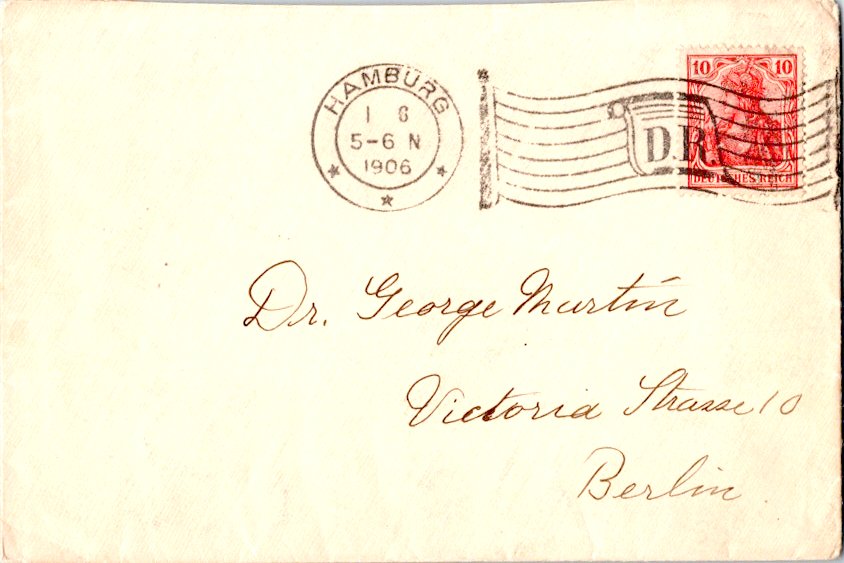 HAMBURG
1 6
5-6 N
1906
D.R.
10 10
DEUTSCHES REICH
Dr. George Martin
Victoria Strasse 10
Berlin